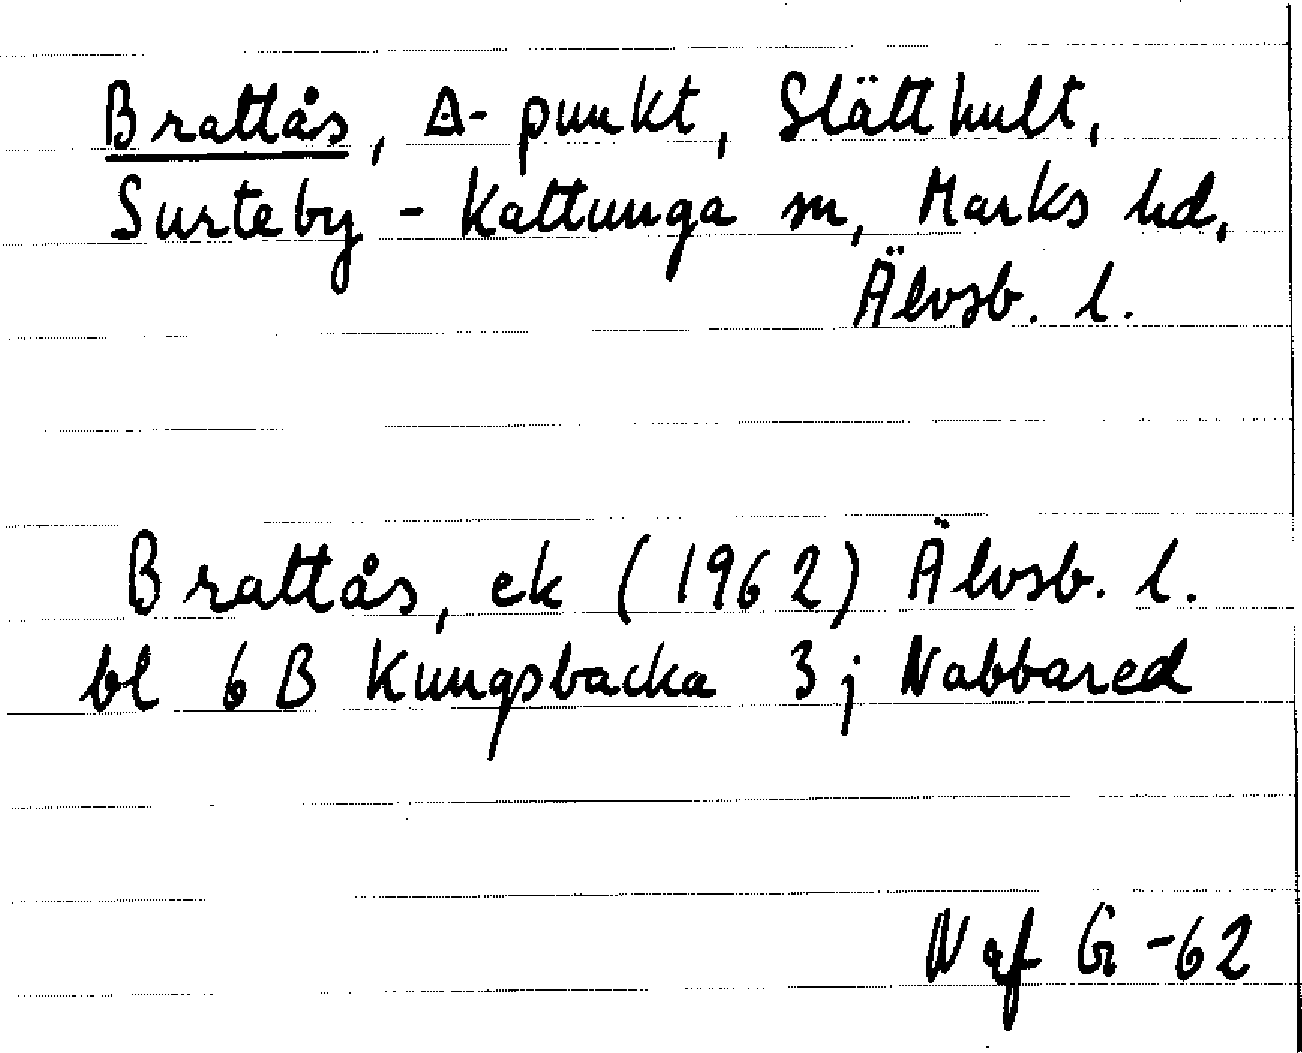 Brattås, △-punkt, Slätthult,
Surteby-Kattunga sn, Marks hd,
Älvsb. l.
Brattås, ek (1962) Älvsb. l.
bl 6 B Kungsbacka 3 j Nabbared
Naf G -62